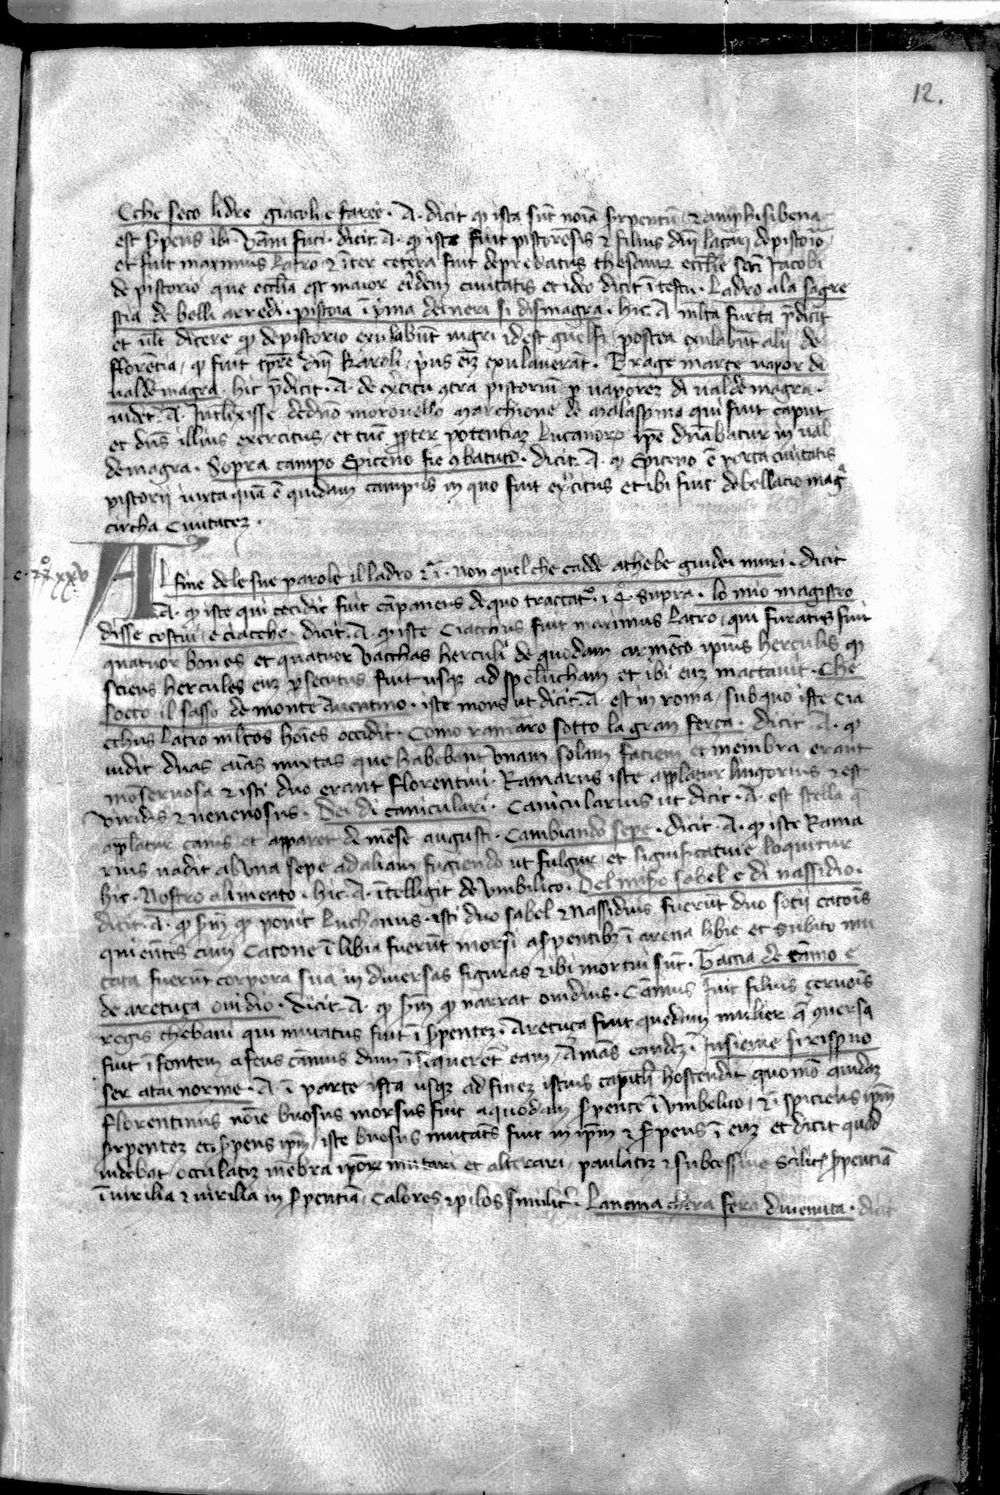 12.
Cche seco lidre giacoli e faree · A · dicit q̄ ista sūt noīa serpentū / & amphisibena
est serpens ibi · Vanni fuci · dicit · A · q̄ iste fuit pistorēsis & filius dn̄i laçari de pistorio
et fuit maximus latro & īter cetera fuit depredatus thesaurū ecclīe scī Jacobi
de pistorio que ecclīa est maior eiusdem civitatis et ideo dicit ī testu · Ladro a la sagre
stia de belli arredi · pistoia ī prima de neri si dismagra · hic · A · mlta futura p̄dicit
et vult dicere q̄ de pistorio exulabūt nigri id est guelfi / postea exulabūt alii de
florētia / q̄ fuit tp̄re dn̄i karoli / prius eīm exulaverāt · Trage marte vapor di
val de magra · hic p̄dicit · A · de exercitu cōtra pistoriū p vaporez di val de magra ·
videt · A · Intllexisse de dn̄o moroello marchione de malaspina qui fuit caput
et dn̄s illius exercitus / et tūc ppter potentiaz Lucanorū ipe dn̄abatur in val
demagra · Sopra campo piceno fie cōbatuto · dicit · A · q̄ piceno ē porta civitatis
pistorii iuxta quā ē quidam campus in quo fuit exercitus et ibi fuit debellatio mag̃
circha civitatez ·
c · xxv
Al fine de le sue parole il ladro & ī · non quel che cadde a thebe giu dei muri · dicit
A · q̄ iste qui cecidit fuit cāpaneus de quo tractatur ī supra · lo mio magistro
disse costui e ciaccho · dicit · A · q̄ iste Ciacchus fuit maximus latro / qui furatus fuit
quatuor boves et quatuor vacchas herculi de quodam armēto ipius herculis q̄
sciens hercules eum psecutus fuit usqz ad speluncham et ibi euz mactavit · Che
sotto il sasso de monte aventino · iste mons ut dicit · A · est in roma / sub quo iste Cia
cchus latro mltos hoīes occidit · Como ramaro sotto la gran ferça · dicit · A · q̄
vidit duas aīas mixtas que habebant unam solam faciem et membra erant
mostruosa & isti duo erant florentini · Ramarus iste applatur lingorius & est
viridis & venenosus · Dei di caniculari · Canicularius ut dicit · A · est stella q̄
applatur canis et apparet de mēse augusti · Cambiando sepe · dicit · A · q̄ iste Rama
rus vadit ab una sepe ad aliam fugiendo ut fulgur et significative loquitur
hic · Nostro alimento · hic · A · ītelligit de umbilico · Del misero sabel e di nassidio ·
dicit · A · q̄ scd̄m q̄ ponit Luchanus · isti duo sabel & Nassidius fuerūt duo sotii catōis
qui eūtes cum Catone ī libia fuerūt morsi a spentibz ī arena libie et subito mu
tata fuerūt corpora sua in diversas figuras & ibi mortui sūt · Taccia de cāmo e
de aretuça ovidio · dicit · A · q̄ scd̄m q̄ narrat ovidius · Camus fuit filius
regis thebani qui mutatus fuit ī spentez · Aretuça fuit quedam mulier q̄ cōversa
fuit ī fontem eandez · Insieme si rispuo
ser a tai norme · A · ī parte ista usqz ad finez istius capituli hostendit quomō quidaz
florentinus noīe buosus morsus fuit a quodam spente ī umbelico / & īspiciens ipm
serpentez et spens ipm / iste buosus mutatus fuit in ipm & spens ī euz et dicit quod
videbat occulatiz mēbra ipōr mutari et alterari / paulatiz & subcessive scilicet spentiā
ī virilia & virilia in spentiā / Calores & pilos similit̄ · Lanema chera fera divenuta · dicit